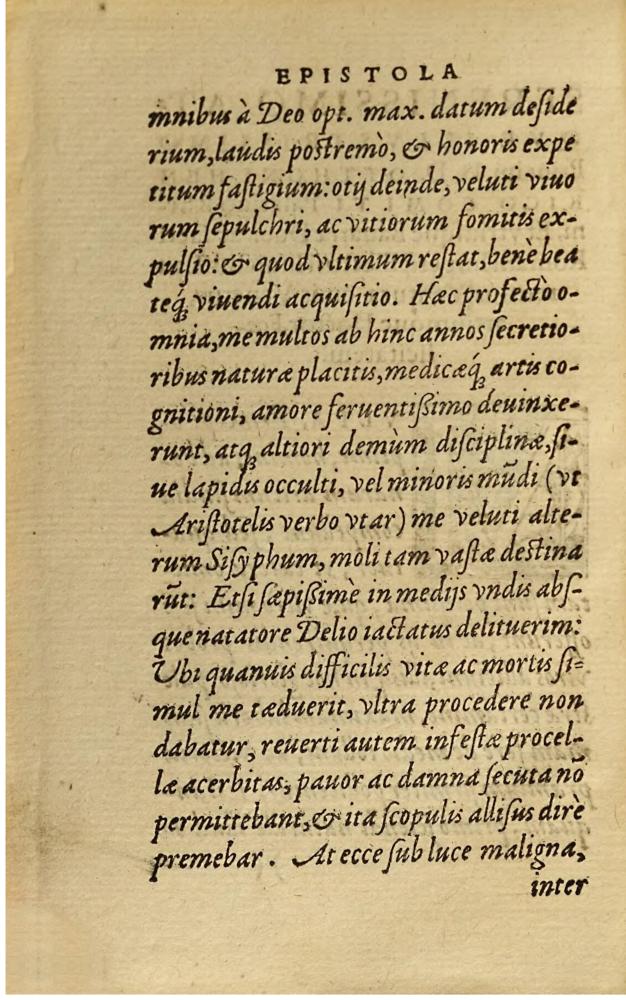 EPISTOLA
mnibus à Deo opt. max. datum deside
rium, laudis postremò, & honoris expe
titum fastigium: otij deinde, veluti viuo
rum sepulchri, ac vitiorum fomitis ex-
pulsio: & quod vltimum restat, benè bea
teq́ꝫ viuendi acquisitio. Hæc profectò o-
mnia, me multos ab hinc annos secretio-
ribus naturæ placitis, medicæq́ꝫ artis co-
gnitioni, amore feruentißimo deuinxe-
runt, atqꝫ altiori demùm disciplinæ, si-
ue lapidis occulti, vel minoris mũdi (vt
Aristotelis verbo vtar) me veluti alte-
rum Sisyphum, moli tam vastæ destina
rũt: Etsi sæpißimè in medijs vndis abs-
que natatore Delio iactatus delituerim:
Ubi quanuis difficilis vitæ ac mortis si-
mul me tæduerit, vltra procedere non
dabatur, reuerti autem infestæ procel-
læ acerbitas, pauor ac damna secuta nõ
permittebant, & ita scopulis allisus dirè
premebar. At ecce sub luce maligna,
inter